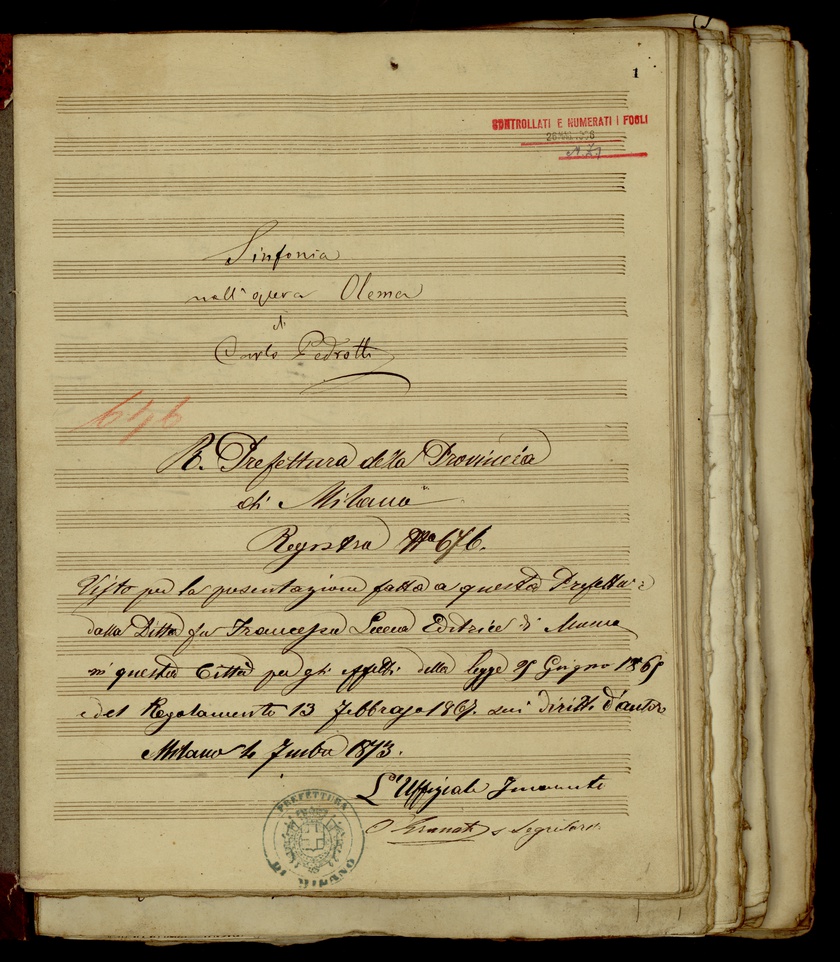 1
CONTROLLATI E NUMERATI I FOGLI
Sinfonia
nell'opera Olema
di
Carlo Pedrotti
646
R. Prefettura della Provincia
di Milano
Registro N° 676.
Visto per la presentazione fatta a questa Prefettu=
dalla Ditta Francesca Lucca Editrice di Musica
in questa Città per gli effetti della legge 25 Giugno 1865
e del Regolamento 13 Febbrajo 1867. sui diritti d'autore
Milano 1873.
L'Uffiziale
Segretario
PREFETTURA
DI MILANO